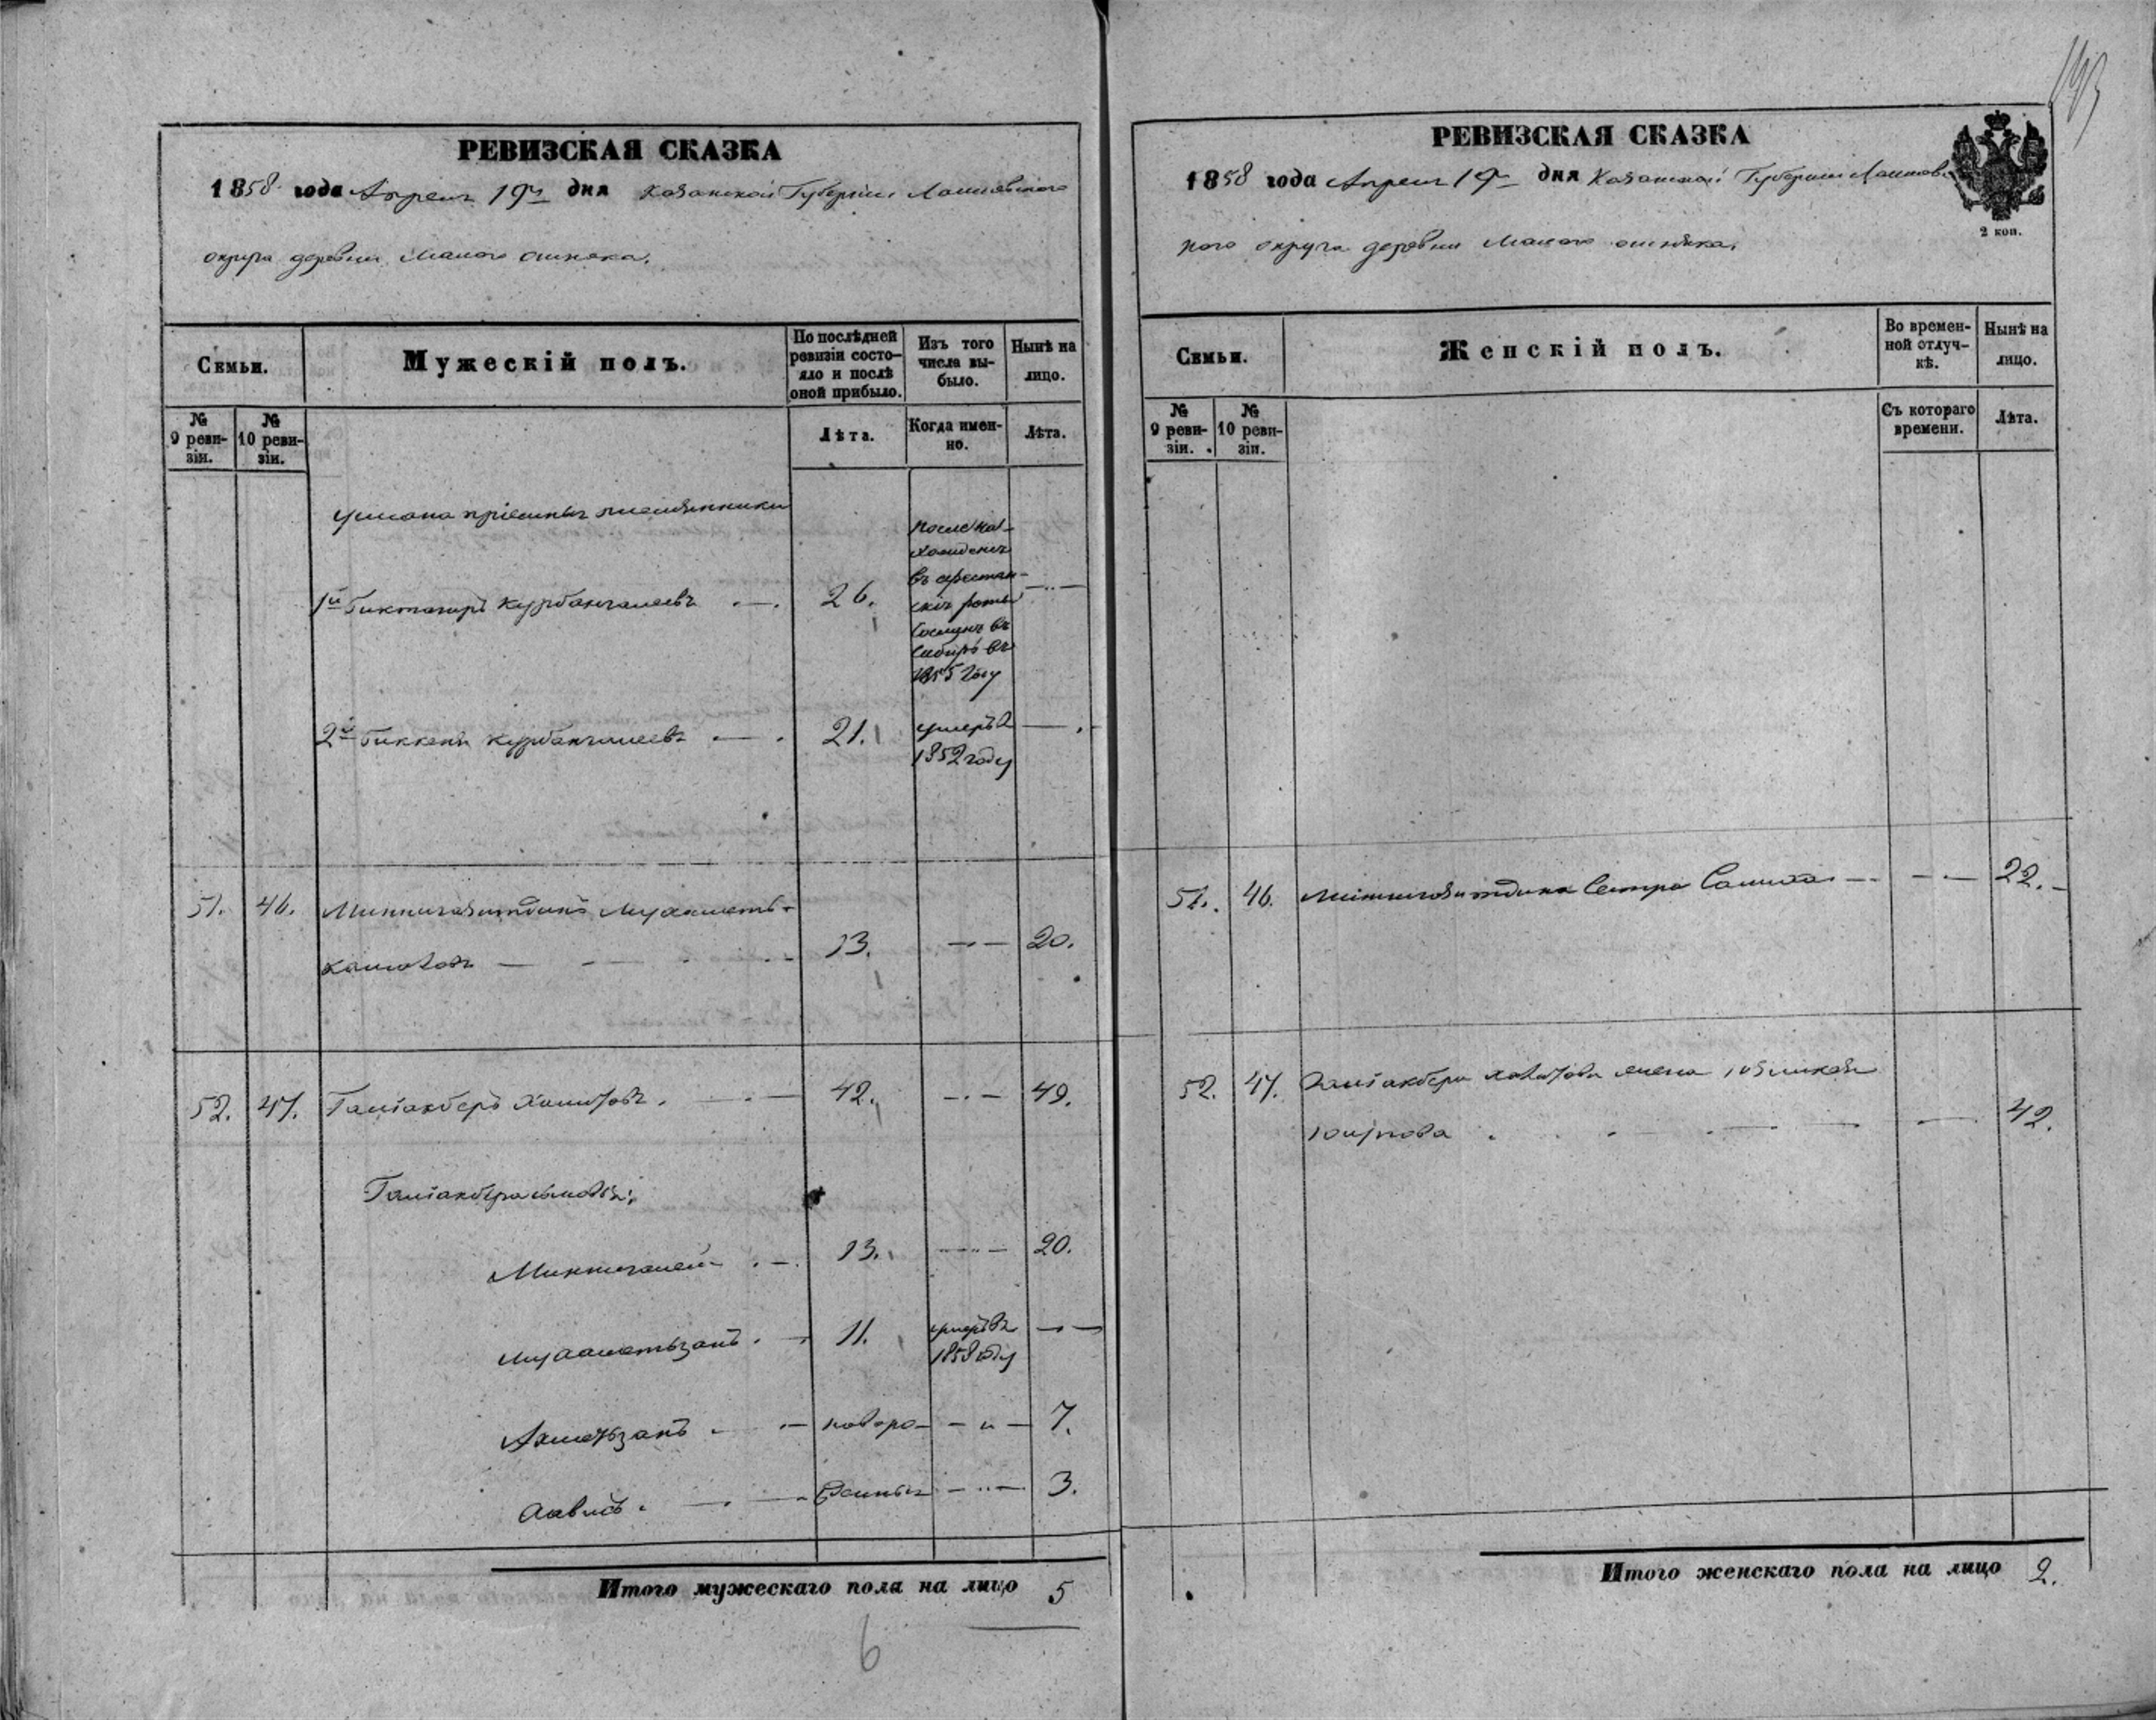 193
РЕВИЗСКАЯ СКАЗКА
1858 года Апреля 19го дня Казанской Губернiи Лаишевскаго
округа деревни Малаго Ошняка.
Семьи.
Мужескiй полъ.
По послѣдней ревизiи состояло и послѣ оной прибыло.
Изъ того числа выбыло.
Нынѣ на лицо.
№ 9 ревизiи.
№ 10 ревизiи.
Лѣта.
Когда именно.
Лѣта.
Усмана прiемныя племянники
1й Биктагиръ Курбангалеевъ 26.
въ арестанскiя роты
Сосланъ въ
Сибирь въ
1855 году
2й Биккеня Курбангалеевъ 21. умеръ въ
1852 году
51. 46. Миннигазитдинъ Мухаметь-
13. 20.
52. 47. Галiакберъ Хамитовъ. 42. 49.
Галiакбера сыновья:
Миннигалей 13. 20.
Мухаметьзянъ 11. умеръ въ 1858 году
Ахметьзянъ новоро- 7.
жденныя 3.
Итого мужескаго пола на лицо 5
6
РЕВИЗСКАЯ СКАЗКА
1858 года Апреля 19го дня Казанской Губернiи Лаишевс-
2 коп.
каго округа деревни Малаго Ошняка.
Семьи.
Женскiй полъ.
Во временной отлучкѣ.
Нынѣ на лицо.
№ 9 ревизiи.
№ 10 ревизiи.
Съ котораго времени.
Лѣта.
51. 46. Миннигазитдина Сестра Салиха 22.
52. 47. Галiакбера Хамитова жена
Юнусова 42.
Итого женскаго пола на лицо 2.